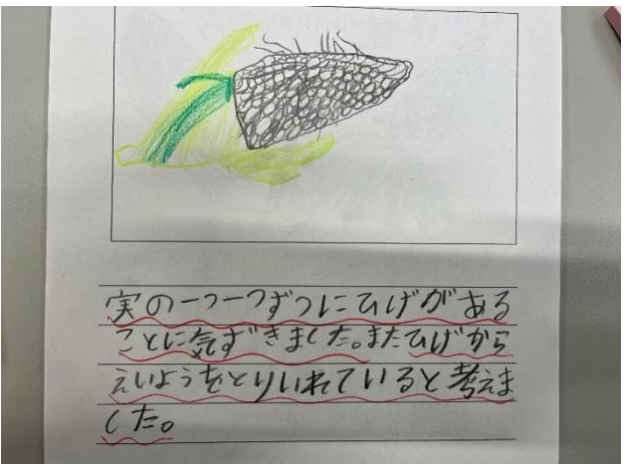 実の一つ一つずつにひげがある
ことに気ずきました。またひげから
えいようをとりいれていると考えま
した。